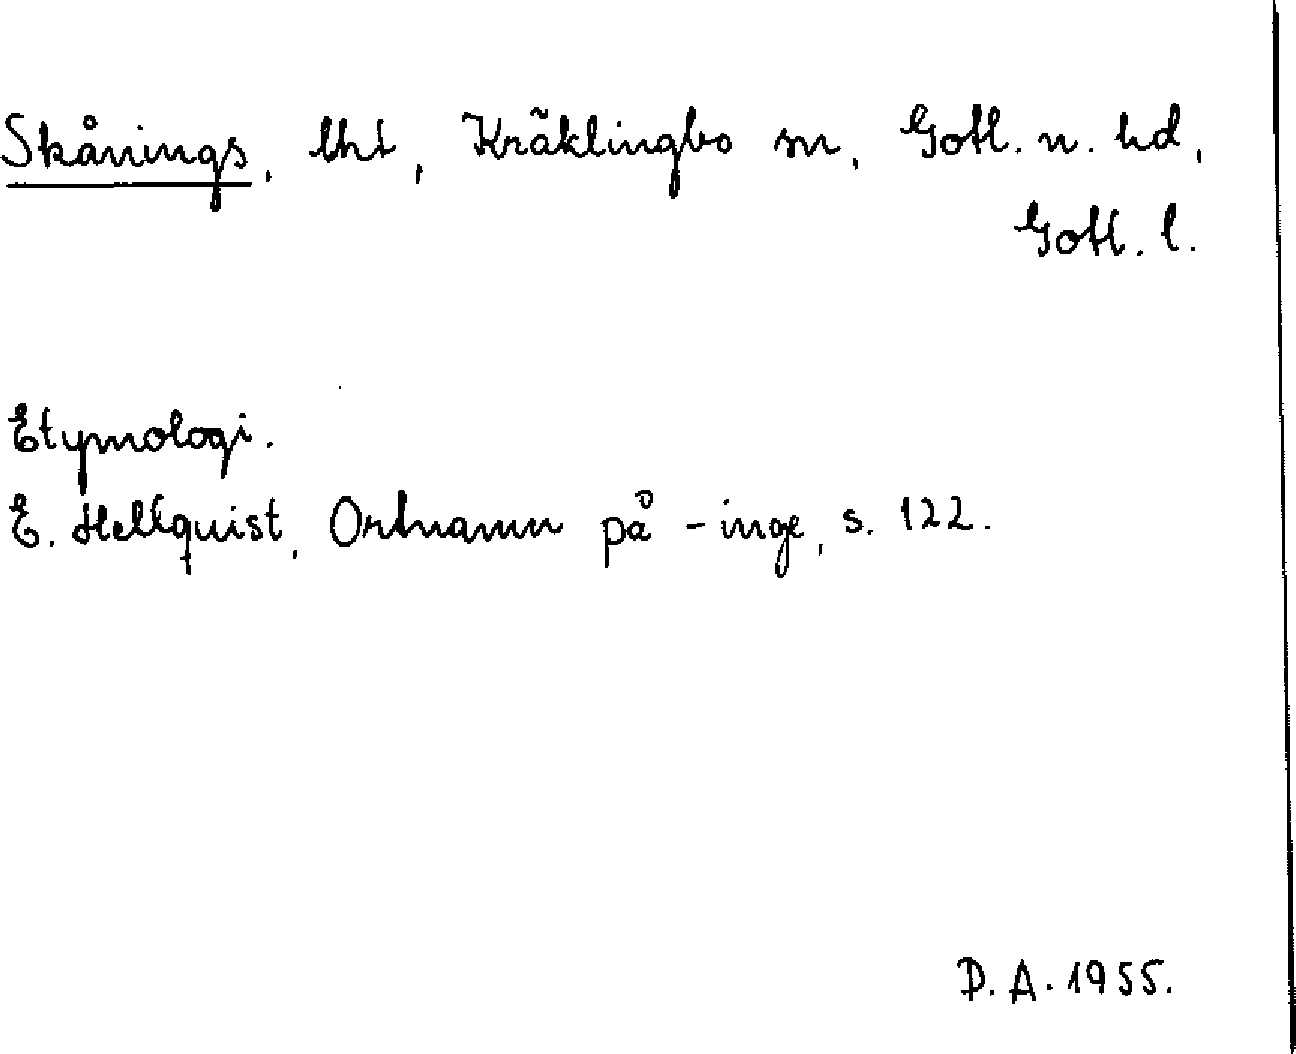 Skånings, lht, Kräklingbo sn, Gotl. n. hd,
Gotl. l.
Etymologi.
E. Hellquist, Ortnamn på -inge, s. 122.
D. A. 1955.